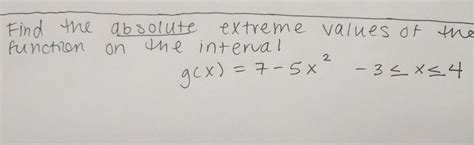 Find the absolute extreme values of the
function on the interval
g(x) = 7 - 5x² -3 ≤ x ≤ 4